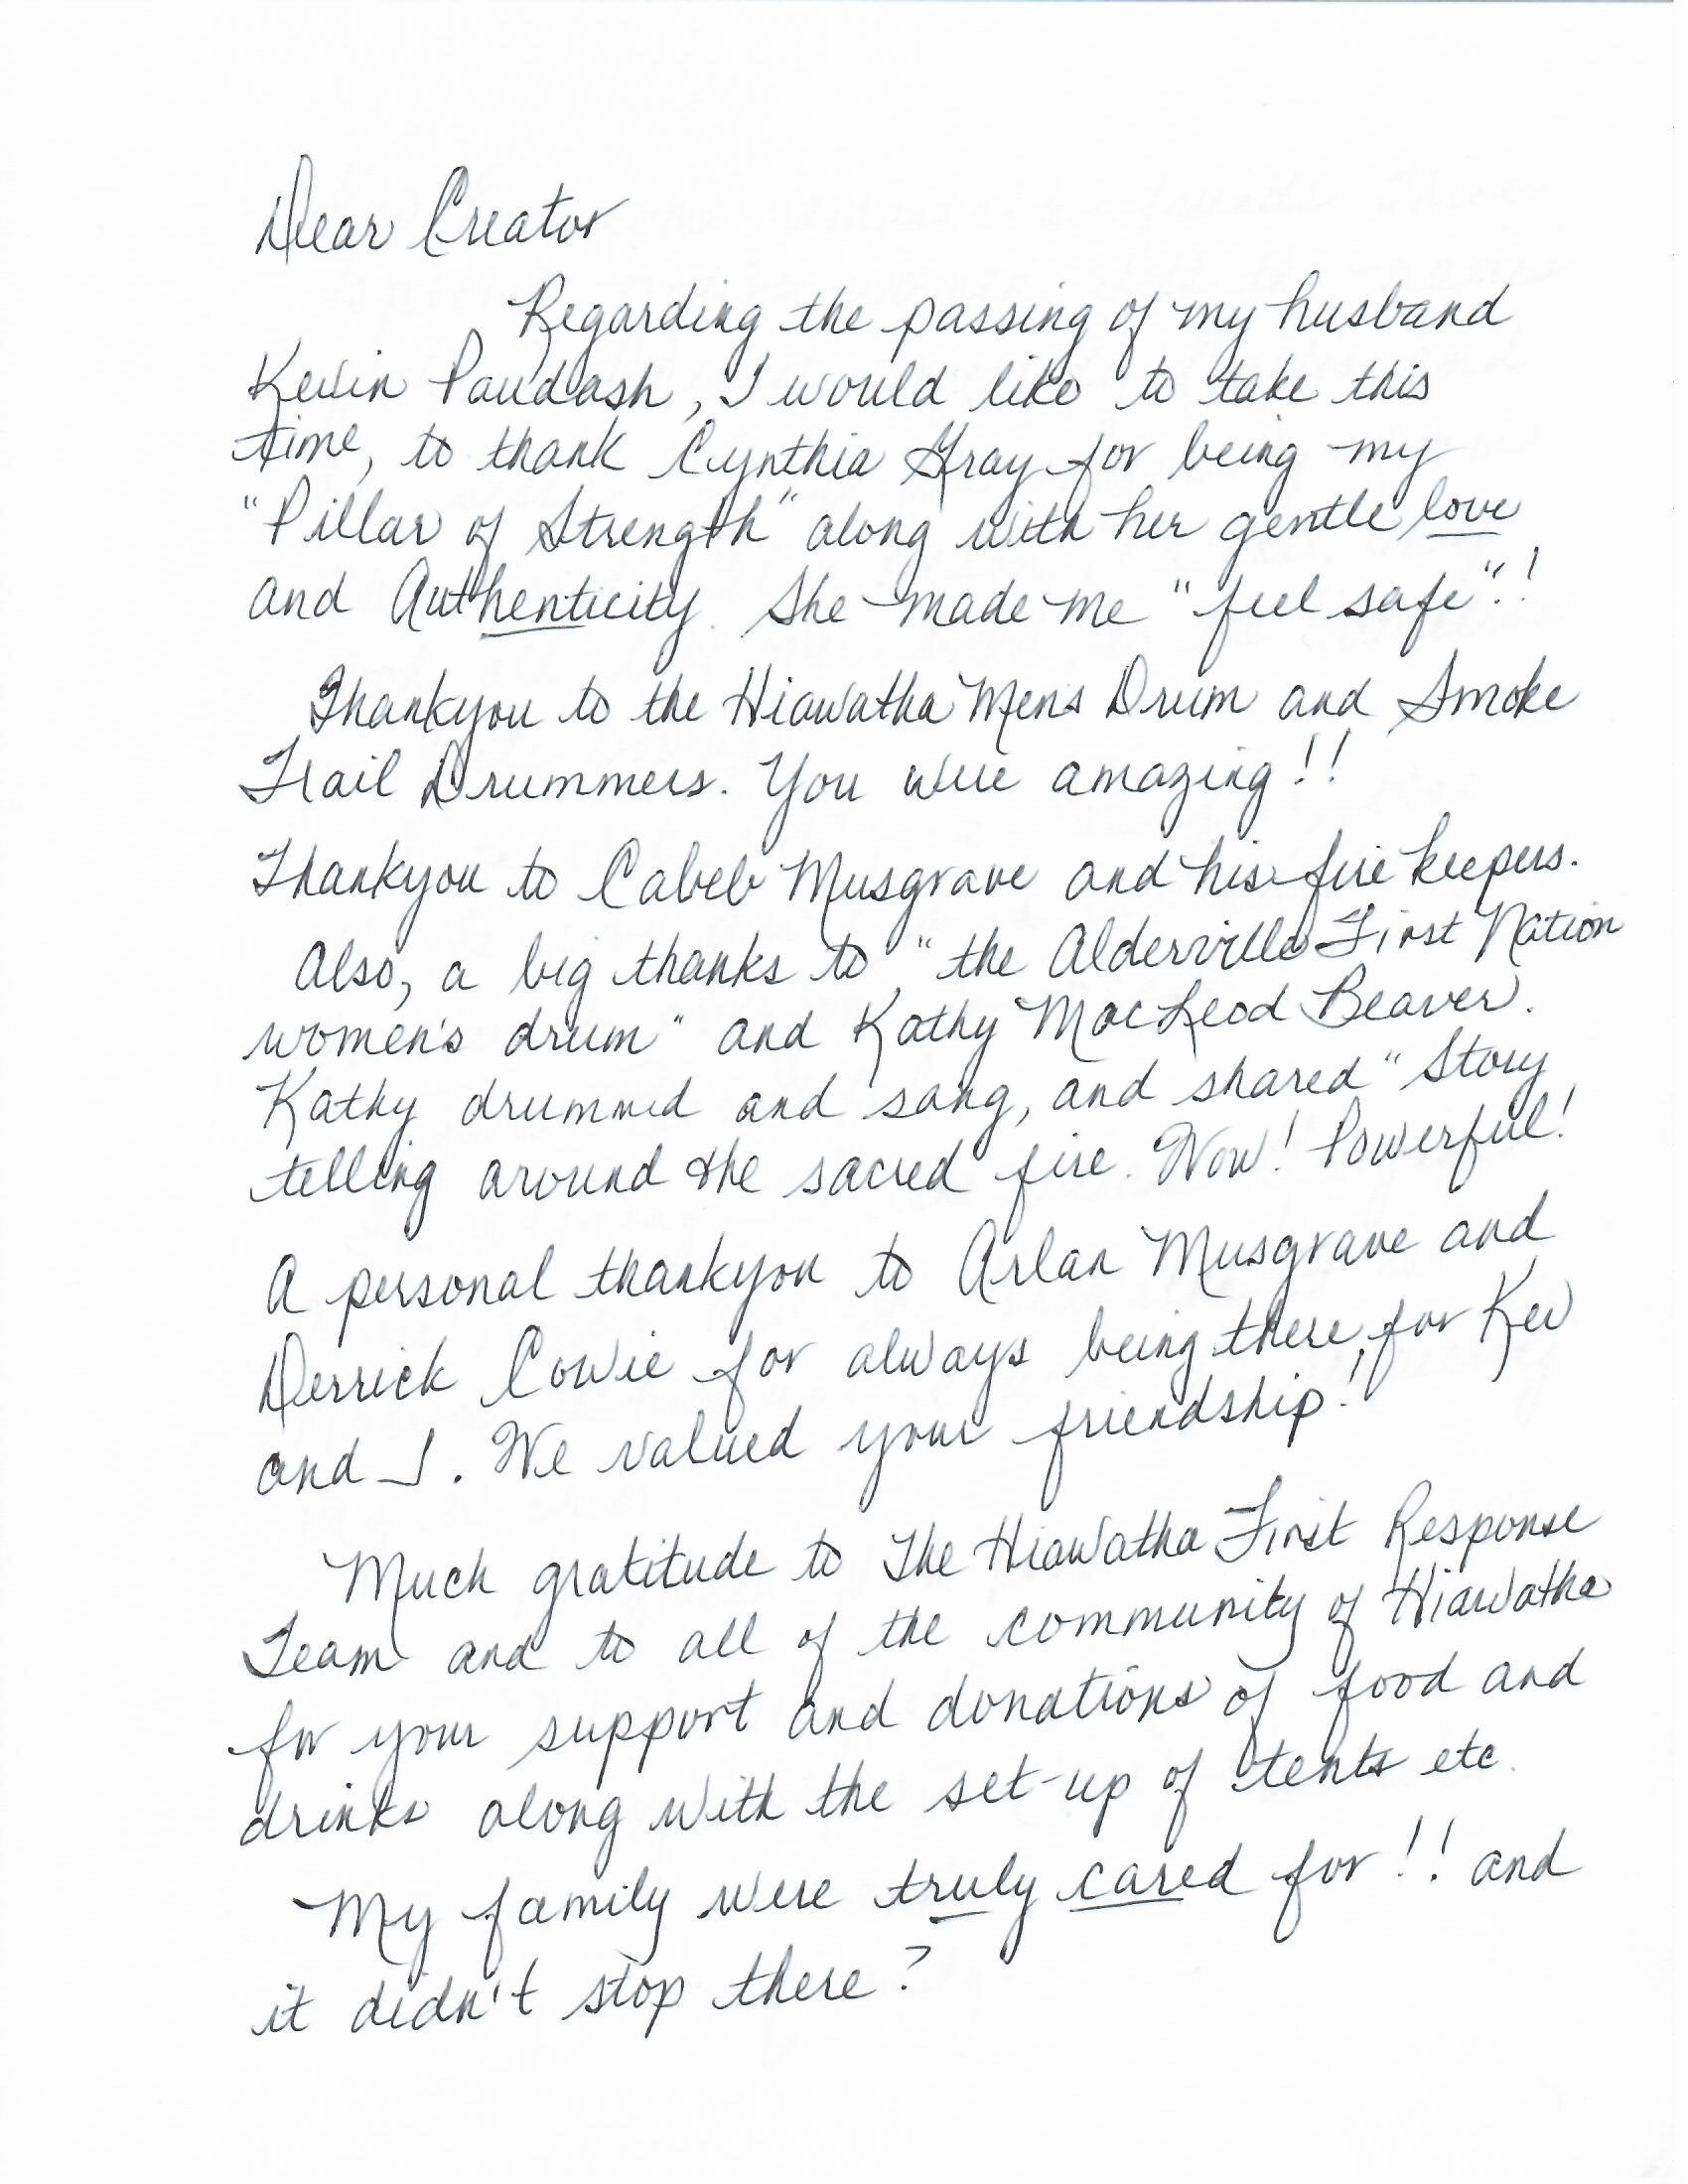 Dear Creator
Regarding the passing of my husband
Kevin Paudash, I would like to take this
time, to thank Cynthia Gray for being my
"Pillar of Strength" along with her gentle love
and Authenticity. She made me "feel safe"!
Thankyou to the Hiawatha Men's Drum and Smoke
Trail Drummers. You were amazing!!
Thankyou to Cabeb Musgrave and his fire keepers.
Also, a big thanks to, "the Alderville First Nation
women's drum" and Kathy MacLeod Beaver.
Kathy drummed and sang, and shared "Story
telling around the sacred fire. Wow! Powerful!
A personal thankyou to Arlan Musgrave and
Derrick Cowie for always being there, for Kev
and I. We valued your friendship!
Much gratitude to The Hiawatha First Response
Team and to all of the community of Hiawatha
for your support and donations of food and
drinks along with the set-up of tents etc.
My family were truly cared for!! and
it didn't stop there?